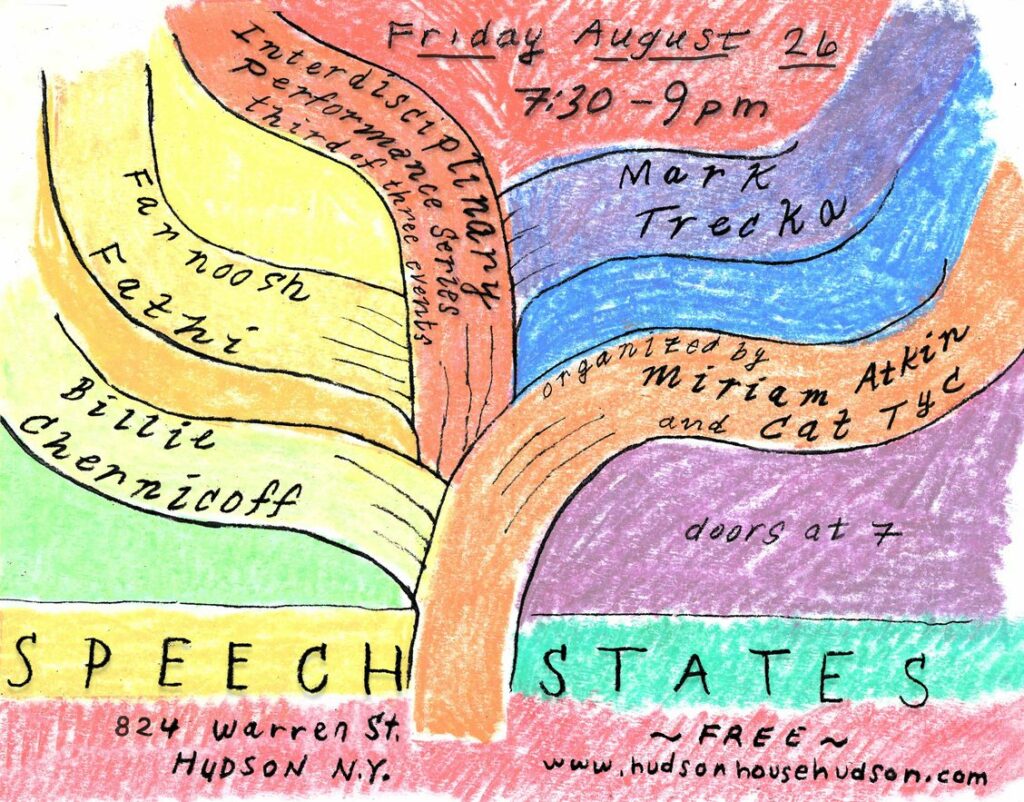 Friday August 26
7:30 - 9 pm
Interdisciplinary
Performance Series
third of three events
Mark
Trecka
Farnoosh
Fathi
organized by
Miriam Atkin
and Cat Tyc
Billie
Chernicoff
doors at 7
SPEECH STATES
824 Warren St.
HUDSON N.Y.
~ FREE ~
www.hudsonhousehudson.com